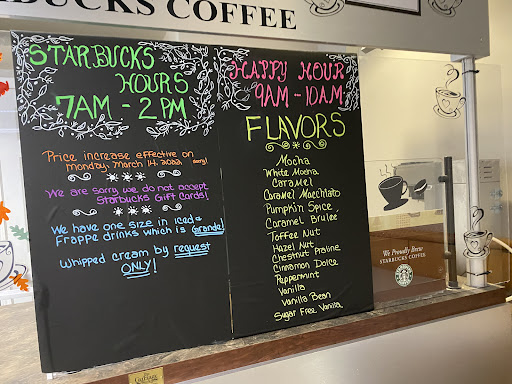 RBUCKS COFFEE
STARBUCKS
HOURS
7AM - 2 PM
Price increase effective on
Monday, March 14, 2022 (sorry)
We are sorry we do not accept
Starbucks Gift Cards!
We have one size in iced &
Frappe drinks which is Grande!
Whipped cream by request
ONLY!
HAPPY HOUR
9AM - 10AM
FLAVORS
Mocha
White Mocha
Caramel
Caramel Macchiato
Pumpkin Spice
Caramel Brulee
Toffee Nut
Hazel Nut
Chestnut Praline
Cinnamon Dolce
Peppermint
Vanilla
Vanilla Bean
Sugar Free Vanilla
We Proudly Brew
STARBUCKS COFFEE